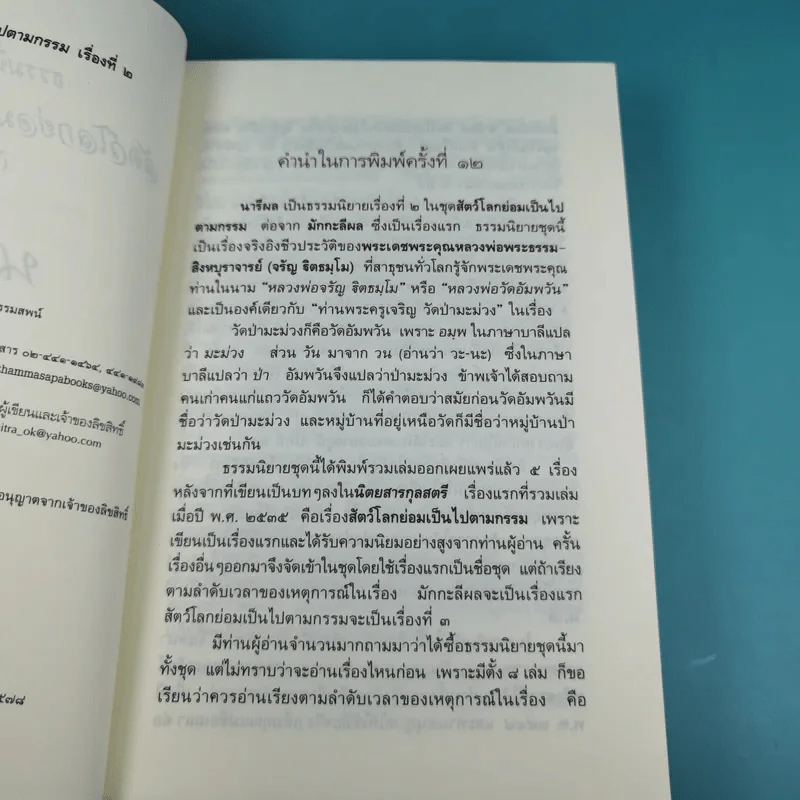 ปตามกรรม เรื่องที่ ๒
รรมสพน์
สาร ๐๒-๔๔๑-๑๕๖๔, ๔๔๑-๑๔๘๘
hammasapabooks@yahoo.com
ผู้เขียนและเจ้าของลิขสิทธิ์
itra_ok@yahoo.com
อนุญาตจากเจ้าของลิขสิทธิ์
๕๗๘
คำนำในการพิมพ์ครั้งที่ ๑๒
นารีผล เป็นธรรมนิยายเรื่องที่ ๒ ในชุดสัตว์โลกย่อมเป็นไป
ตามกรรม ต่อจาก มักกะลีผล ซึ่งเป็นเรื่องแรก ธรรมนิยายชุดนี้
เป็นเรื่องจริงอิงชีวประวัติของพระเดชพระคุณหลวงพ่อพระธรรม-
สิงหบุราจารย์ (จรัญ ฐิตธมฺโม) ที่สาธุชนทั่วโลกรู้จักพระเดชพระคุณ
ท่านในนาม “หลวงพ่อจรัญ ฐิตธมฺโม” หรือ “หลวงพ่อวัดอัมพวัน”
และเป็นองค์เดียวกับ “ท่านพระครูเจริญ วัดป่ามะม่วง” ในเรื่อง
วัดป่ามะม่วงก็คือวัดอัมพวัน เพราะ อมฺพ ในภาษาบาลีแปล
ว่า มะม่วง ส่วน วัน มาจาก วน (อ่านว่า วะ-นะ) ซึ่งในภาษา
บาลีแปลว่า ป่า อัมพวันจึงแปลว่าป่ามะม่วง ข้าพเจ้าได้สอบถาม
คนเก่าคนแก่แถววัดอัมพวัน ก็ได้คำตอบว่าสมัยก่อนวัดอัมพวันมี
ชื่อว่าวัดป่ามะม่วง และหมู่บ้านที่อยู่เหนือวัดก็มีชื่อว่าหมู่บ้านป่า
มะม่วงเช่นกัน
ธรรมนิยายชุดนี้ได้พิมพ์รวมเล่มออกเผยแพร่แล้ว ๕ เรื่อง
หลังจากที่เขียนเป็นบทๆลงในนิตยสารกุลสตรี เรื่องแรกที่รวมเล่ม
เมื่อปี พ.ศ. ๒๕๓๕ คือเรื่องสัตว์โลกย่อมเป็นไปตามกรรม เพราะ
เขียนเป็นเรื่องแรกและได้รับความนิยมอย่างสูงจากท่านผู้อ่าน ครั้น
เรื่องอื่นๆออกมาจึงจัดเข้าในชุดโดยใช้เรื่องแรกเป็นชื่อชุด แต่ถ้าเรียง
ตามลำดับเวลาของเหตุการณ์ในเรื่อง มักกะลีผลจะเป็นเรื่องแรก
สัตว์โลกย่อมเป็นไปตามกรรมจะเป็นเรื่องที่ ๓
มีท่านผู้อ่านจำนวนมากถามมาว่าได้ซื้อธรรมนิยายชุดนี้มา
ทั้งชุด แต่ไม่ทราบว่าจะอ่านเรื่องไหนก่อน เพราะมีตั้ง ๘ เล่ม ก็ขอ
เรียนว่าควรอ่านเรียงตามลำดับเวลาของเหตุการณ์ในเรื่อง คือ